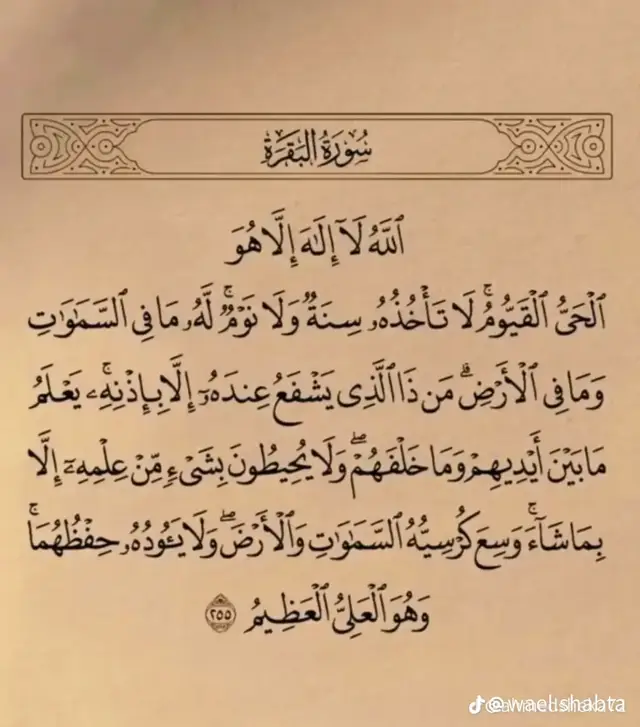 سُورَةُ الْبَقَرَةِ
ٱللَّهُ لَآ إِلَٰهَ إِلَّا هُوَ
ٱلْحَىُّ ٱلْقَيُّومُ ۚ لَا تَأْخُذُهُۥ سِنَةٌ وَلَا نَوْمٌ ۚ لَّهُۥ مَا فِى ٱلسَّمَٰوَٰتِ
وَمَا فِى ٱلْأَرْضِ ۗ مَن ذَا ٱلَّذِى يَشْفَعُ عِندَهُۥٓ إِلَّا بِإِذْنِهِۦ ۚ يَعْلَمُ
مَا بَيْنَ أَيْدِيهِمْ وَمَا خَلْفَهُمْ ۖ وَلَا يُحِيطُونَ بِشَىْءٍ مِّنْ عِلْمِهِۦٓ إِلَّا
بِمَا شَآءَ ۚ وَسِعَ كُرْسِيُّهُ ٱلسَّمَٰوَٰتِ وَٱلْأَرْضَ ۖ وَلَا يَـُٔودُهُۥ حِفْظُهُمَا ۚ
وَهُوَ ٱلْعَلِىُّ ٱلْعَظِيمُ ٢٥٥